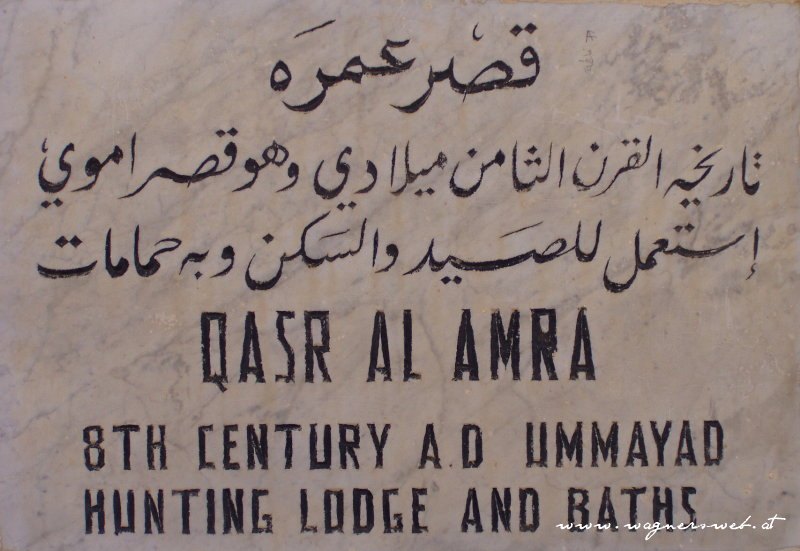 قصر عمره
تاريخه القرن الثامن ميلادي وهو قصر اموي
إستعمل للصيد والسكن وبه حمامات
QASR AL AMRA
8TH CENTURY A.D UMMAYAD
HUNTING LODGE AND BATHS
www.wagnersweb.at